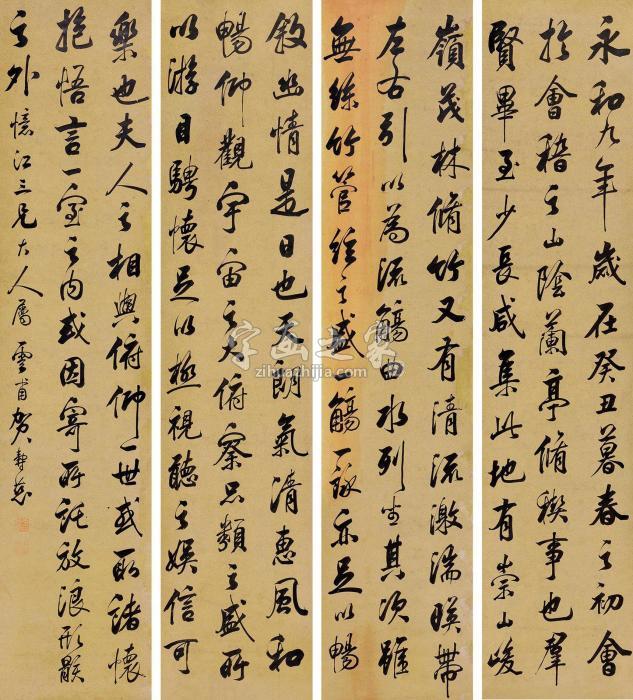 永和九年歲在癸丑暮春之初會
於會稽之山陰蘭亭脩稧事也羣
賢畢至少長咸集此地有崇山峻
嶺茂林脩竹又有清流激湍暎帶
左右引以為流觴曲水列坐其次雖
無絲竹管絃之盛一觴一詠亦足以暢
敘幽情是日也天朗氣清惠風和
暢仰觀宇宙之大俯察品類之盛所
以游目騁懷足以極視聽之娛信可
樂也夫人之相與俯仰一世或取諸懷
抱悟言一室之內或因寄所託放浪形骸
之外 憶江三兄大人屬 雲甫賀壽慈
字画之家
zihuazhijia.com